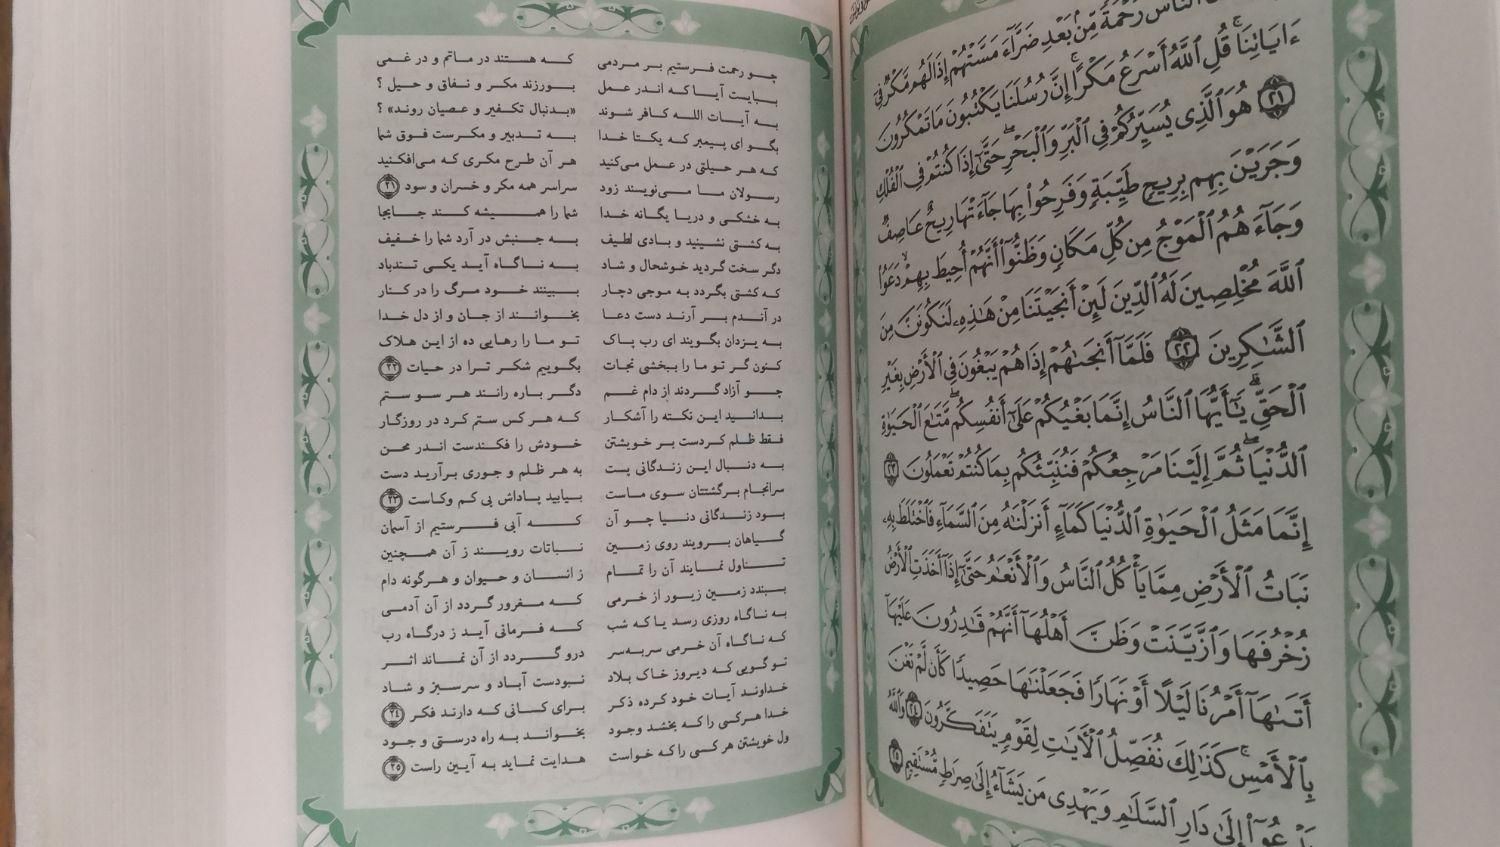 ٱلنَّاسَ رَحْمَةً مِّنۢ بَعْدِ ضَرَّآءَ مَسَّتْهُمْ إِذَا لَهُم مَّكْرٌ فِىٓ
ءَايَاتِنَا ۚ قُلِ ٱللَّهُ أَسْرَعُ مَكْرًا ۚ إِنَّ رُسُلَنَا يَكْتُبُونَ مَا تَمْكُرُونَ
﴿٢١﴾ هُوَ ٱلَّذِى يُسَيِّرُكُمْ فِى ٱلْبَرِّ وَٱلْبَحْرِ ۖ حَتَّىٰٓ إِذَا كُنتُمْ فِى ٱلْفُلْكِ
وَجَرَيْنَ بِهِم بِرِيحٍ طَيِّبَةٍ وَفَرِحُوا۟ بِهَا جَآءَتْهَا رِيحٌ عَاصِفٌ
وَجَآءَهُمُ ٱلْمَوْجُ مِن كُلِّ مَكَانٍ وَظَنُّوٓا۟ أَنَّهُمْ أُحِيطَ بِهِمْ ۙ دَعَوُا۟
ٱللَّهَ مُخْلِصِينَ لَهُ ٱلدِّينَ لَئِنْ أَنجَيْتَنَا مِنْ هَـٰذِهِۦ لَنَكُونَنَّ مِنَ
ٱلشَّـٰكِرِينَ ﴿٢٢﴾ فَلَمَّآ أَنجَىٰهُمْ إِذَا هُمْ يَبْغُونَ فِى ٱلْأَرْضِ بِغَيْرِ
ٱلْحَقِّ ۗ يَـٰٓأَيُّهَا ٱلنَّاسُ إِنَّمَا بَغْيُكُمْ عَلَىٰٓ أَنفُسِكُم ۖ مَّتَـٰعَ ٱلْحَيَوٰةِ
ٱلدُّنْيَا ۖ ثُمَّ إِلَيْنَا مَرْجِعُكُمْ فَنُنَبِّئُكُم بِمَا كُنتُمْ تَعْمَلُونَ ﴿٢٣﴾
إِنَّمَا مَثَلُ ٱلْحَيَوٰةِ ٱلدُّنْيَا كَمَآءٍ أَنزَلْنَـٰهُ مِنَ ٱلسَّمَآءِ فَٱخْتَلَطَ بِهِۦ
نَبَاتُ ٱلْأَرْضِ مِمَّا يَأْكُلُ ٱلنَّاسُ وَٱلْأَنْعَـٰمُ حَتَّىٰٓ إِذَآ أَخَذَتِ ٱلْأَرْضُ
زُخْرُفَهَا وَٱزَّيَّنَتْ وَظَنَّ أَهْلُهَآ أَنَّهُمْ قَـٰدِرُونَ عَلَيْهَآ
أَتَىٰهَآ أَمْرُنَا لَيْلًا أَوْ نَهَارًا فَجَعَلْنَـٰهَا حَصِيدًا كَأَن لَّمْ تَغْنَ
بِٱلْأَمْسِ ۚ كَذَٰلِكَ نُفَصِّلُ ٱلْـَٔايَـٰتِ لِقَوْمٍ يَتَفَكَّرُونَ ﴿٢٤﴾ وَٱللَّهُ
يَدْعُوٓا۟ إِلَىٰ دَارِ ٱلسَّلَـٰمِ وَيَهْدِى مَن يَشَآءُ إِلَىٰ صِرَٰطٍ مُّسْتَقِيمٍ ﴿٢٥﴾
چو رحمت فرستیم بر مردمی که هستند در ماتم و در غمی
ببایست آیا که اندر عمل بورزند مکر و نفاق و حیل ؟
به آیات الله کافر شوند «بدنبال تکفیر و عصیان روند» ؟
بگو ای پیمبر که یکتا خدا به تدبیر و مکرست فوق شما
که هر حیلتی در عمل می‌کنید هر آن طرح مکری که می‌افکنید
رسولان ما می‌نویسند زود سراسر همه مکر و خسران و سود ﴿٢١﴾
به خشکی و دریا یگانه خدا شما را همیشه کند جابجا
به کشتی نشینید و بادی لطیف به جنبش در آرد شما را خفیف
دگر سخت گردید خوشحال و شاد به ناگاه آید یکی تندباد
که کشتی بگردد به موجی دچار ببینند خود مرگ را در کنار
در آندم بر آرند دست دعا بخوانند از جان و از دل خدا
به یزدان بگویند ای رب پاک تو ما را رهایی ده از این هلاک
کنون گر تو ما را ببخشی نجات بگوییم شکر ترا در حیات ﴿٢٢﴾
چو آزاد گردند از دام غم دگر باره رانند هر سو ستم
بدانید این نکته را آشکار که هر کس ستم کرد در روزگار
فقط ظلم کردست بر خویشتن خودش را فکندست اندر محن
به دنبال این زندگانی پست به هر ظلم و جوری برآرید دست
سرانجام برگشتتان سوی ماست بیابید پاداش بی کم وکاست ﴿٢٣﴾
بود زندگانی دنیا چو آن که آبی فرستیم از آسمان
گیاهان برویند روی زمین نباتات رویند ز آن همچنین
تناول نمایند آن را تمام ز انسان و حیوان و هرگونه دام
ببندد زمین زیور از خرمی که مغرور گردد از آن آدمی
به ناگاه روزی رسد یا که شب که فرمانی آید ز درگاه رب
که ناگاه آن خرمی سربه‌سر درو گردد از آن نماند اثر
تو گویی که دیروز خاک بلاد نبودست آباد و سرسبز و شاد
خداوند آیات خود کرده ذکر برای کسانی که دارند فکر ﴿٢٤﴾
خدا هرکسی را که بخشد وجود بخواند به راه درستی و جود
ول خویشتن هر کسی را که خواست هدایت نماید به آیین راست ﴿٢٥﴾